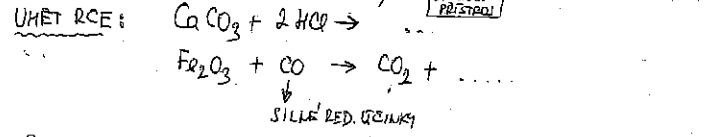 PŘÍSTROJ
UMĚT RCE: CaCO₃ + 2 HCl → ..
Fe₂O₃ + CO → CO₂ + .....
SILNÉ RED. ÚČINKY